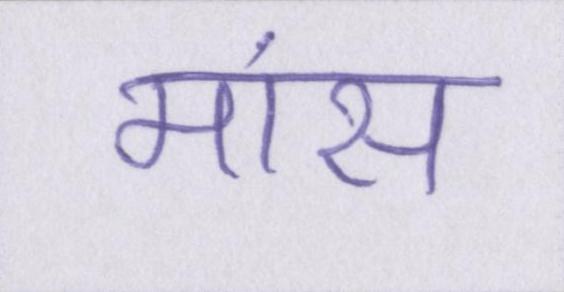 मांस